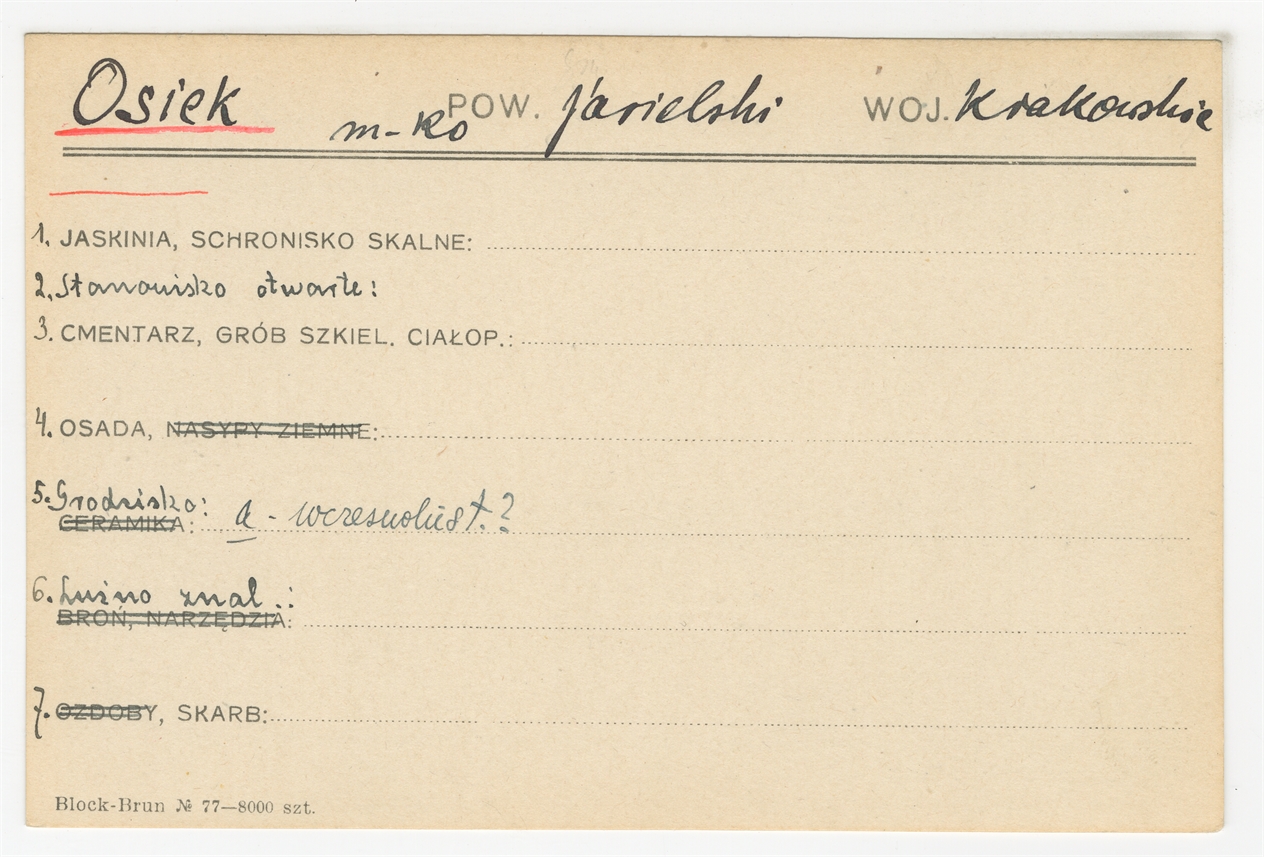 Osiek m-ko POW. jasielski WOJ. Krakowskie
1. JASKINIA, SCHRONISKO SKALNE:
2. Stanowisko otwarte:
3. CMENTARZ, GRÓB SZKIEL. CIAŁOP.:
4. OSADA, NASYPY ZIEMNE:
5. Grodzisko:
CERAMIKA: a - wczesnohist.?
6. Luźno znal.:
BROŃ, NARZĘDZIA:
7. OZDOBY, SKARB:
Block-Brun № 77—8000 szt.